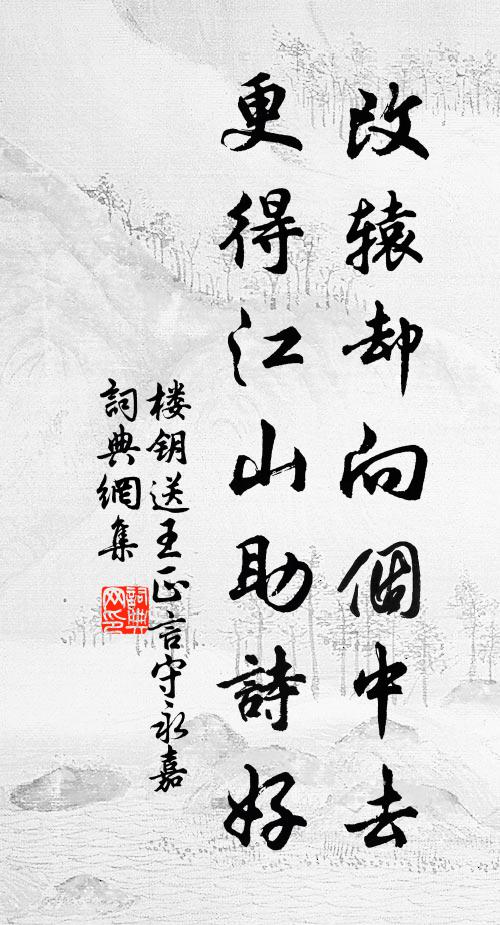 改辕却向個中去
更得江山助詩好
楼钥送王正言守永嘉
詞典網集
詞典网印